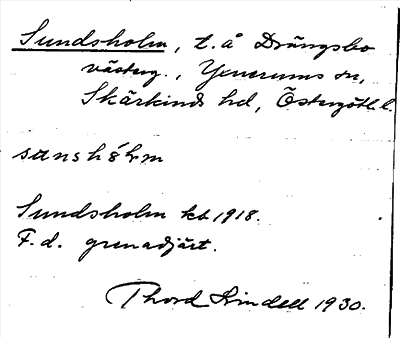 Sundsholm, t. å Drängsbo
västerg., Yxnerums sn,
Skärkinds hd, Östergötl. l.
sunshólm
Sundsholm kb 1918.
F.d. grenadjärt.
Thord Lindell 1930.